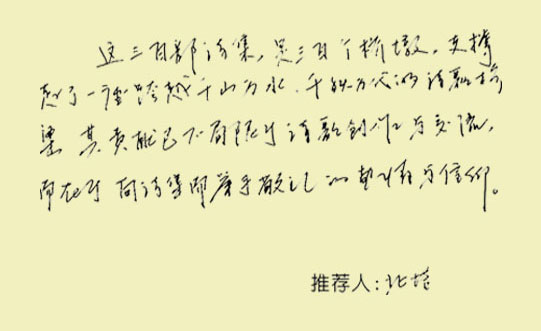 这三百部诗集,是三百个桥墩,支撑
起了一座跨越千山万水、千秋万代的诗歌桥
梁,其贡献已不局限于诗歌创作与交流,
而在于向诗
与信仰。
推荐人:北塔